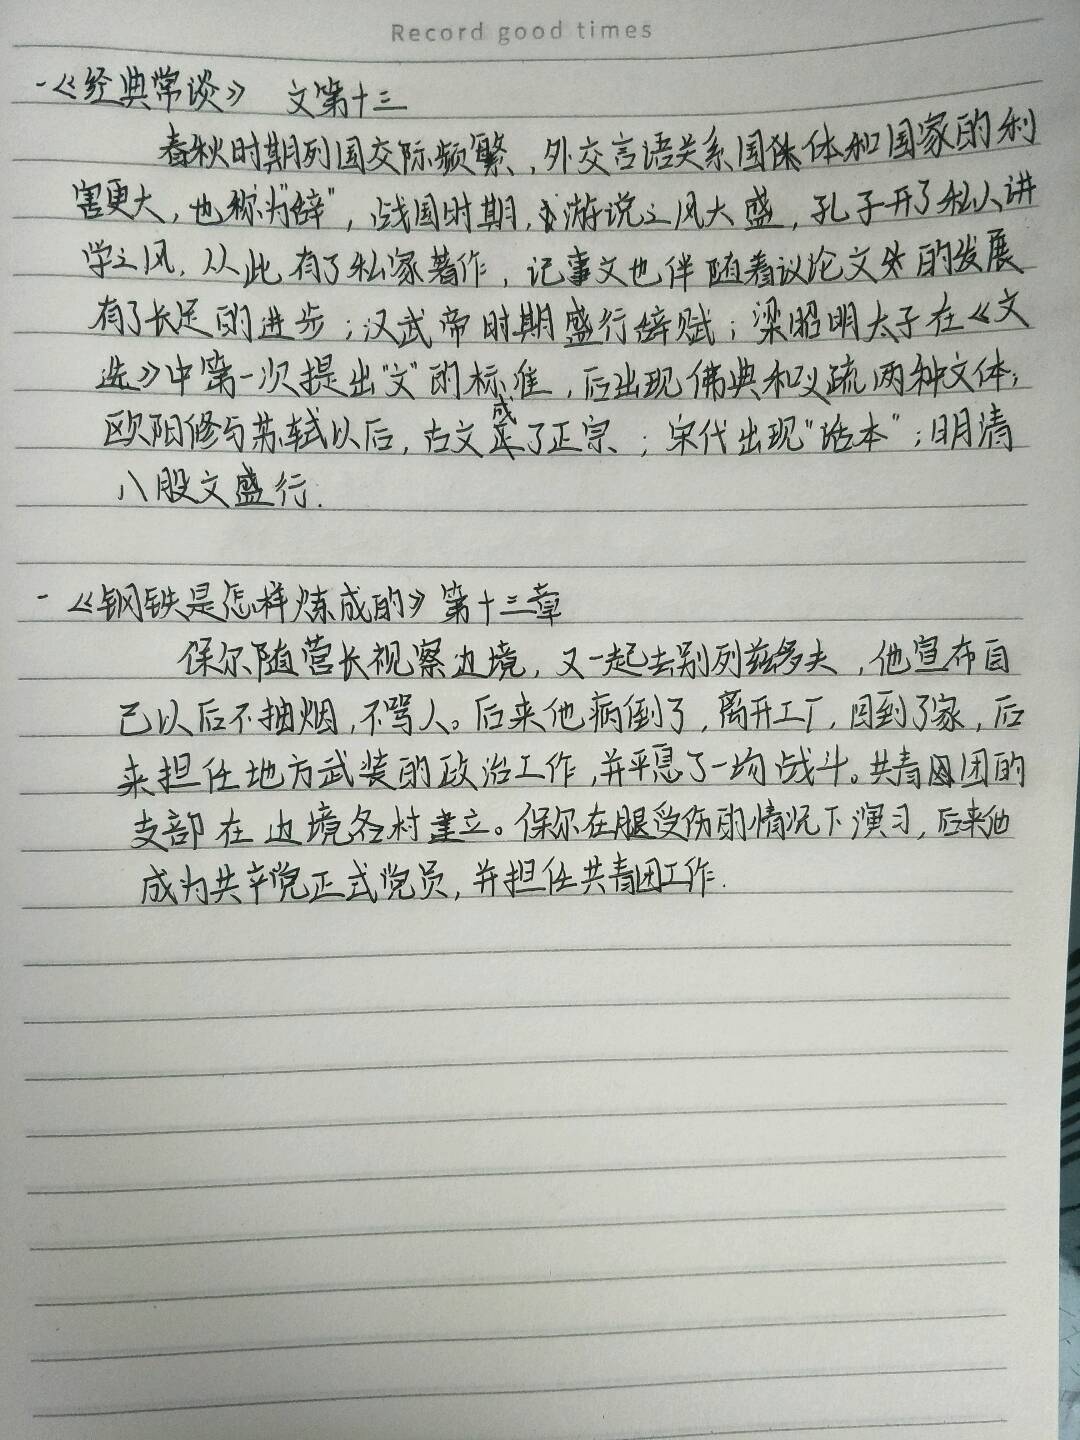 Record good times
-《经典常谈》 文第十三
春秋时期列国交际频繁,外交言语关系国体和国家的利
害更大,也称为"辞",战国时期,游说之风大盛,孔子开了私人讲
学之风,从此有了私家著作,记事文也伴随着议论文的发展
有了长足的进步;汉武帝时期盛行辞赋;梁昭明太子在《文
选》中第一次提出"文"的标准,后出现佛典和义疏两种文体;
欧阳修与苏轼以后,古文成了正宗;宋代出现"话本";明清
八股文盛行.
-《钢铁是怎样炼成的》第十三章
保尔随营长视察边境,又一起去别列兹多夫,他宣布自
己以后不抽烟,不骂人。后来他病倒了,离开工厂,回到了家,后
来担任地方武装的政治工作,并平息了一场战斗。共青团的
支部在边境各村建立。保尔在腿受伤的情况下演习,后来他
成为共产党正式党员,并担任共青团工作.